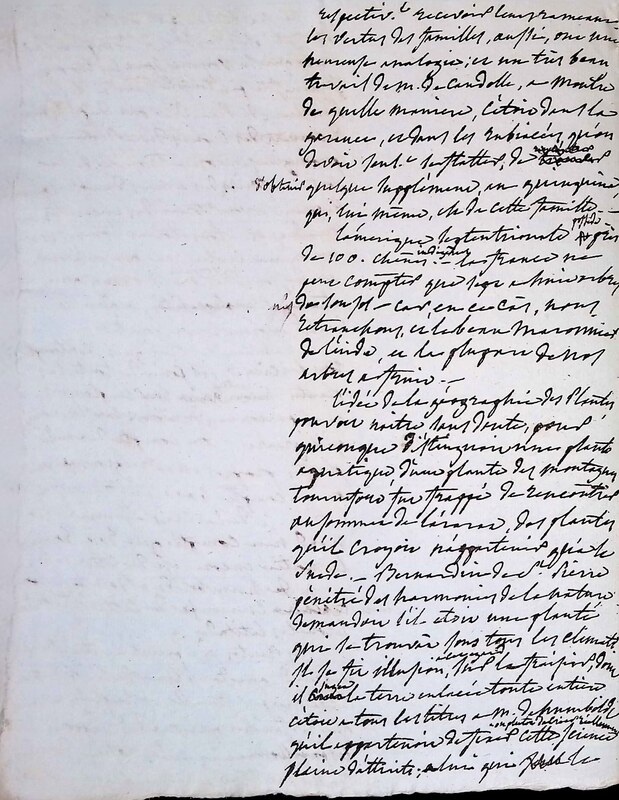 respectiv.t recevoir leurs rameaux
les vertus des familles, aussi, ont une
heureuse analogie; et un très beau
travail de m. de Candolle, a montré
de quelle maniere, c'étoit dans la
garance, et dans les rubiacées, qu'on
devoit seul.t se flatter, de
d'obtenir quelque supplément, au quinquina
qui, lui même, est de cette famille. —
L'amérique septentrionale possède près
de 100. chênes indigènes. — la france ne
peut compter que arbres
nés de son sol — car, en ce cas, nous
retranchons, et le beau maronnier
de l'inde, et la plupart de nos
arbres —
L'idée de la géographie des plantes
pouvoit naître sans doute, pour
quiconque distinguoit une plante
aquatique d'une plante des montagnes
tournefort fut frappé de rencontrer
au sommet de l'ararat, des plantes
qu'il croyoit n'appartenir qu'à la
Suede. — Bernardin de St. Pierre
pénétré des harmonies de la nature
demandoit s'il étoit une plante
qui se trouvât sous tous les climats
il se fit illusion, sur la dont
il la terre enlacée toute entiere
c'étoit a tous les titres a m. de humboldt
qu'il appartenoit de cette science
pleine d'attraits, a lui qui la